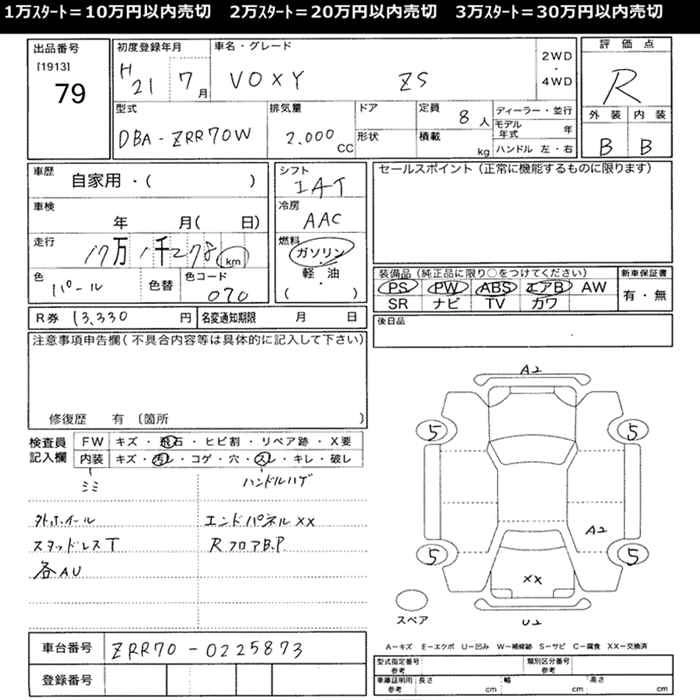 1万ｽﾀｰﾄ＝10万円以内売切　2万ｽﾀｰﾄ＝20万円以内売切　3万ｽﾀｰﾄ＝30万円以内売切
出品番号
[1913]
79
初度登録年月
H21 7月
車名・グレード
VOXY ZS
2WD
・
4WD
評価点
R
外装 内装
B B
型式
DBA-ZRR70W
排気量
2.000 CC
ドア
形状
定員
8人
積載
kg
ディーラー・並行
モデル年式 年
ハンドル 左・右
車歴
自家用・( )
車検
年 月( 日)
走行
17万1千278 km
色
パール
色替
色コード
070
シフト
IAT
冷房
AAC
燃料
ガソリン
・
軽・油
( )
セールスポイント（正常に機能するものに限ります）
装備品（純正品に限り○をつけてください）
PS PW ABS エアB AW
SR ナビ TV カワ
新車保証書
有・無
R券 13,330 円 名変通知期限 月 日
後日品
注意事項申告欄(不具合内容等は具体的に記入して下さい)
修復歴 有 〔箇所 〕
検査員
記入欄
FW キズ・飛石・ヒビ割・リペア跡・X要
内装 キズ・汚レ・コゲ・穴・スレ・キレ・破レ
ミミ
ハンドルハゲ
外ホイール
スタッドレスT
各AU
エンドパネルXX
RフロアB.P
A2
5 5
A2
5 5
XX
スペア
U2
車台番号 ZRR70-0225873
登録番号
A－キズ E－エクボ U－凹み W－補修跡 S－サビ C－腐食 XX－交換済
型式指定番号
参考
類別区分番号
参考
車庫証明用
参考
長さ cm 幅 cm 高さ cm